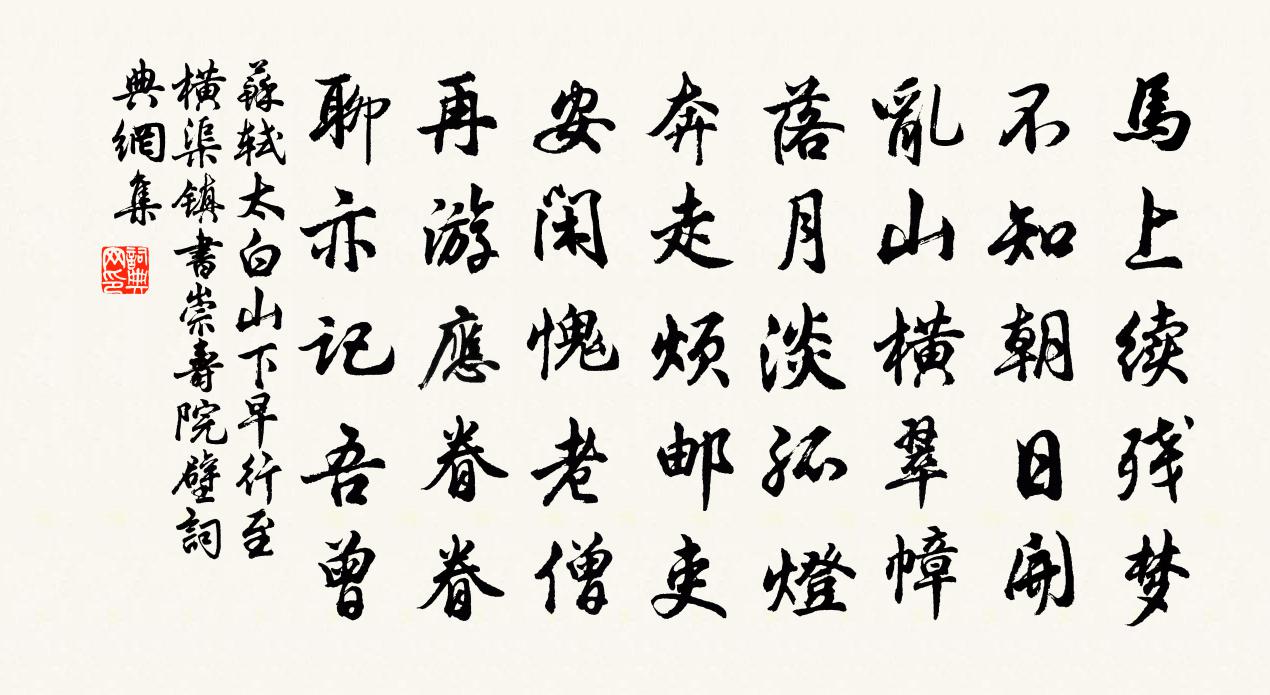 馬上续残梦
不知朝日開
亂山橫翠幛
落月淡孤燈
奔走烦邮吏
安闲愧老僧
再游應眷眷
聊亦记吾曾
蘇軾太白山下早行至
橫渠镇書崇壽院壁詞
典網集
詞典
网印